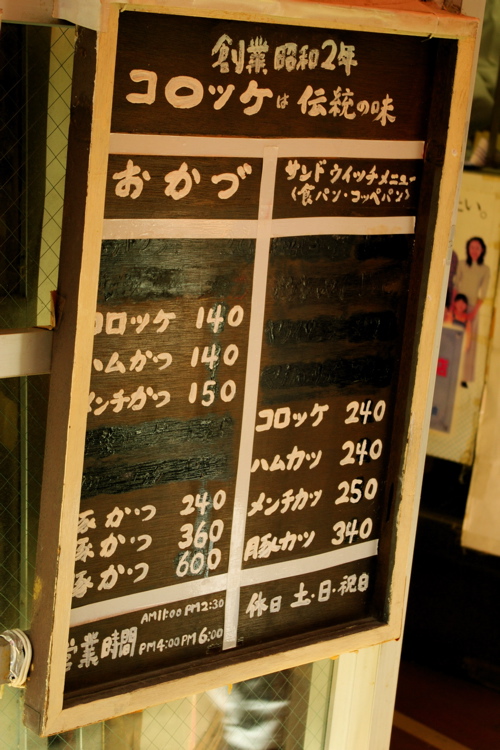 創業昭和2年
コロッケは伝統の味
おかづ
コロッケ 140
ハムかつ 140
メンチかつ 150
豚かつ 240
豚かつ 360
豚かつ 600
サンドウイッチメニュー
(食パン・コッペパン)
コロッケ 240
ハムカツ 240
メンチカツ 250
豚カツ 340
営業時間
AM11:00 PM2:30
PM4:00 PM6:00
休日 土・日・祝日
い。